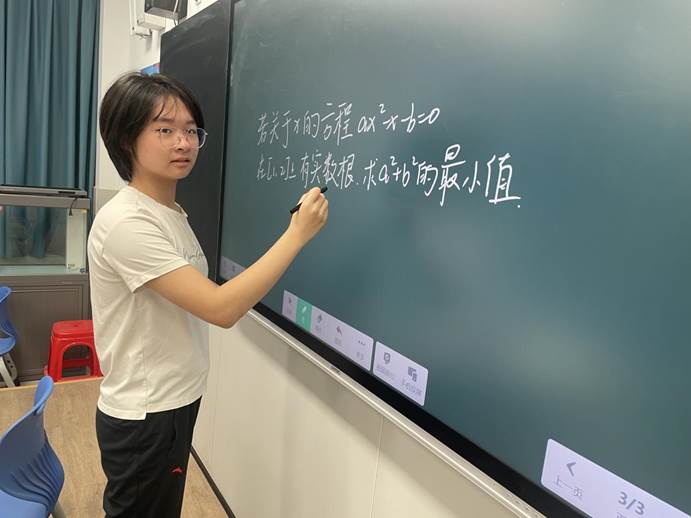 若关于x的方程 ax²-x-b=0
在[1,2]上有实数根.求a²+b²的最小值.
更多
上一页
3/3